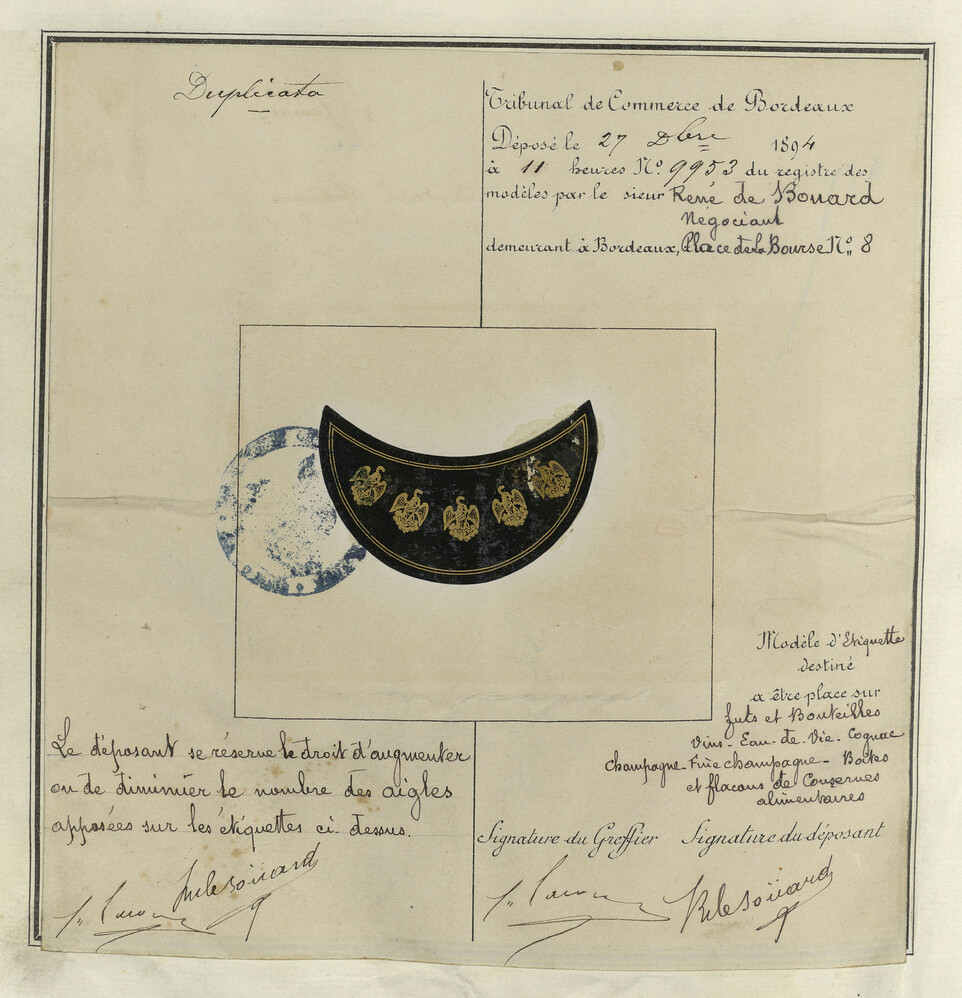 Duplicata
Tribunal de Commerce de Bordeaux
Déposé le 27 Dbre 1894
à 11 heures No. 9953 du registre des
modèles par le sieur René de Bouard
Négociant
demeurant à Bordeaux, Place de la Bourse No. 8
Modèle d'Etiquette
destiné
a être place sur
futs et Bouteilles
Vins - Eau-de-Vie - Cognac
Champagne - Fine champagne - Boites
et flacons de Conserves
alimentaires
Le déposant se réserve le droit d'augmenter
ou de diminuer le nombre des aigles
apposées sur les étiquettes ci-dessus.
Signature du Greffier Signature du déposant